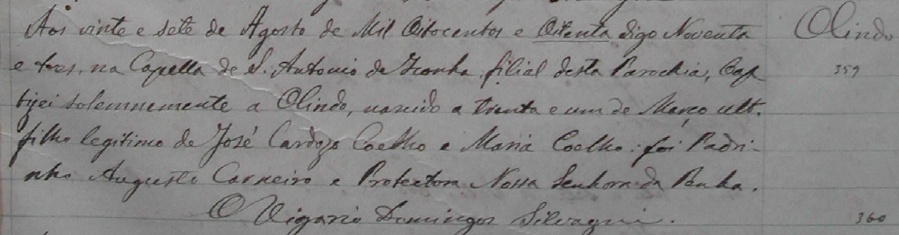 Aos vinte e sete de Agosto de Mil Oitocentos e Oitenta digo Noventa
e tres, na Capella de S. Antonio de Iconha, filial desta Parochia, Bap
tizei solemnemente a Olindo, nascido a trinta e um de Março ult.
filho legitimo de José Cardozo Coelho e Maria Coelho: foi Padri-
nho Augusto Carneiro e Protectora Nossa Senhora da Penha.
O Vigario Domingos Silvagni.
Olindo
359
360